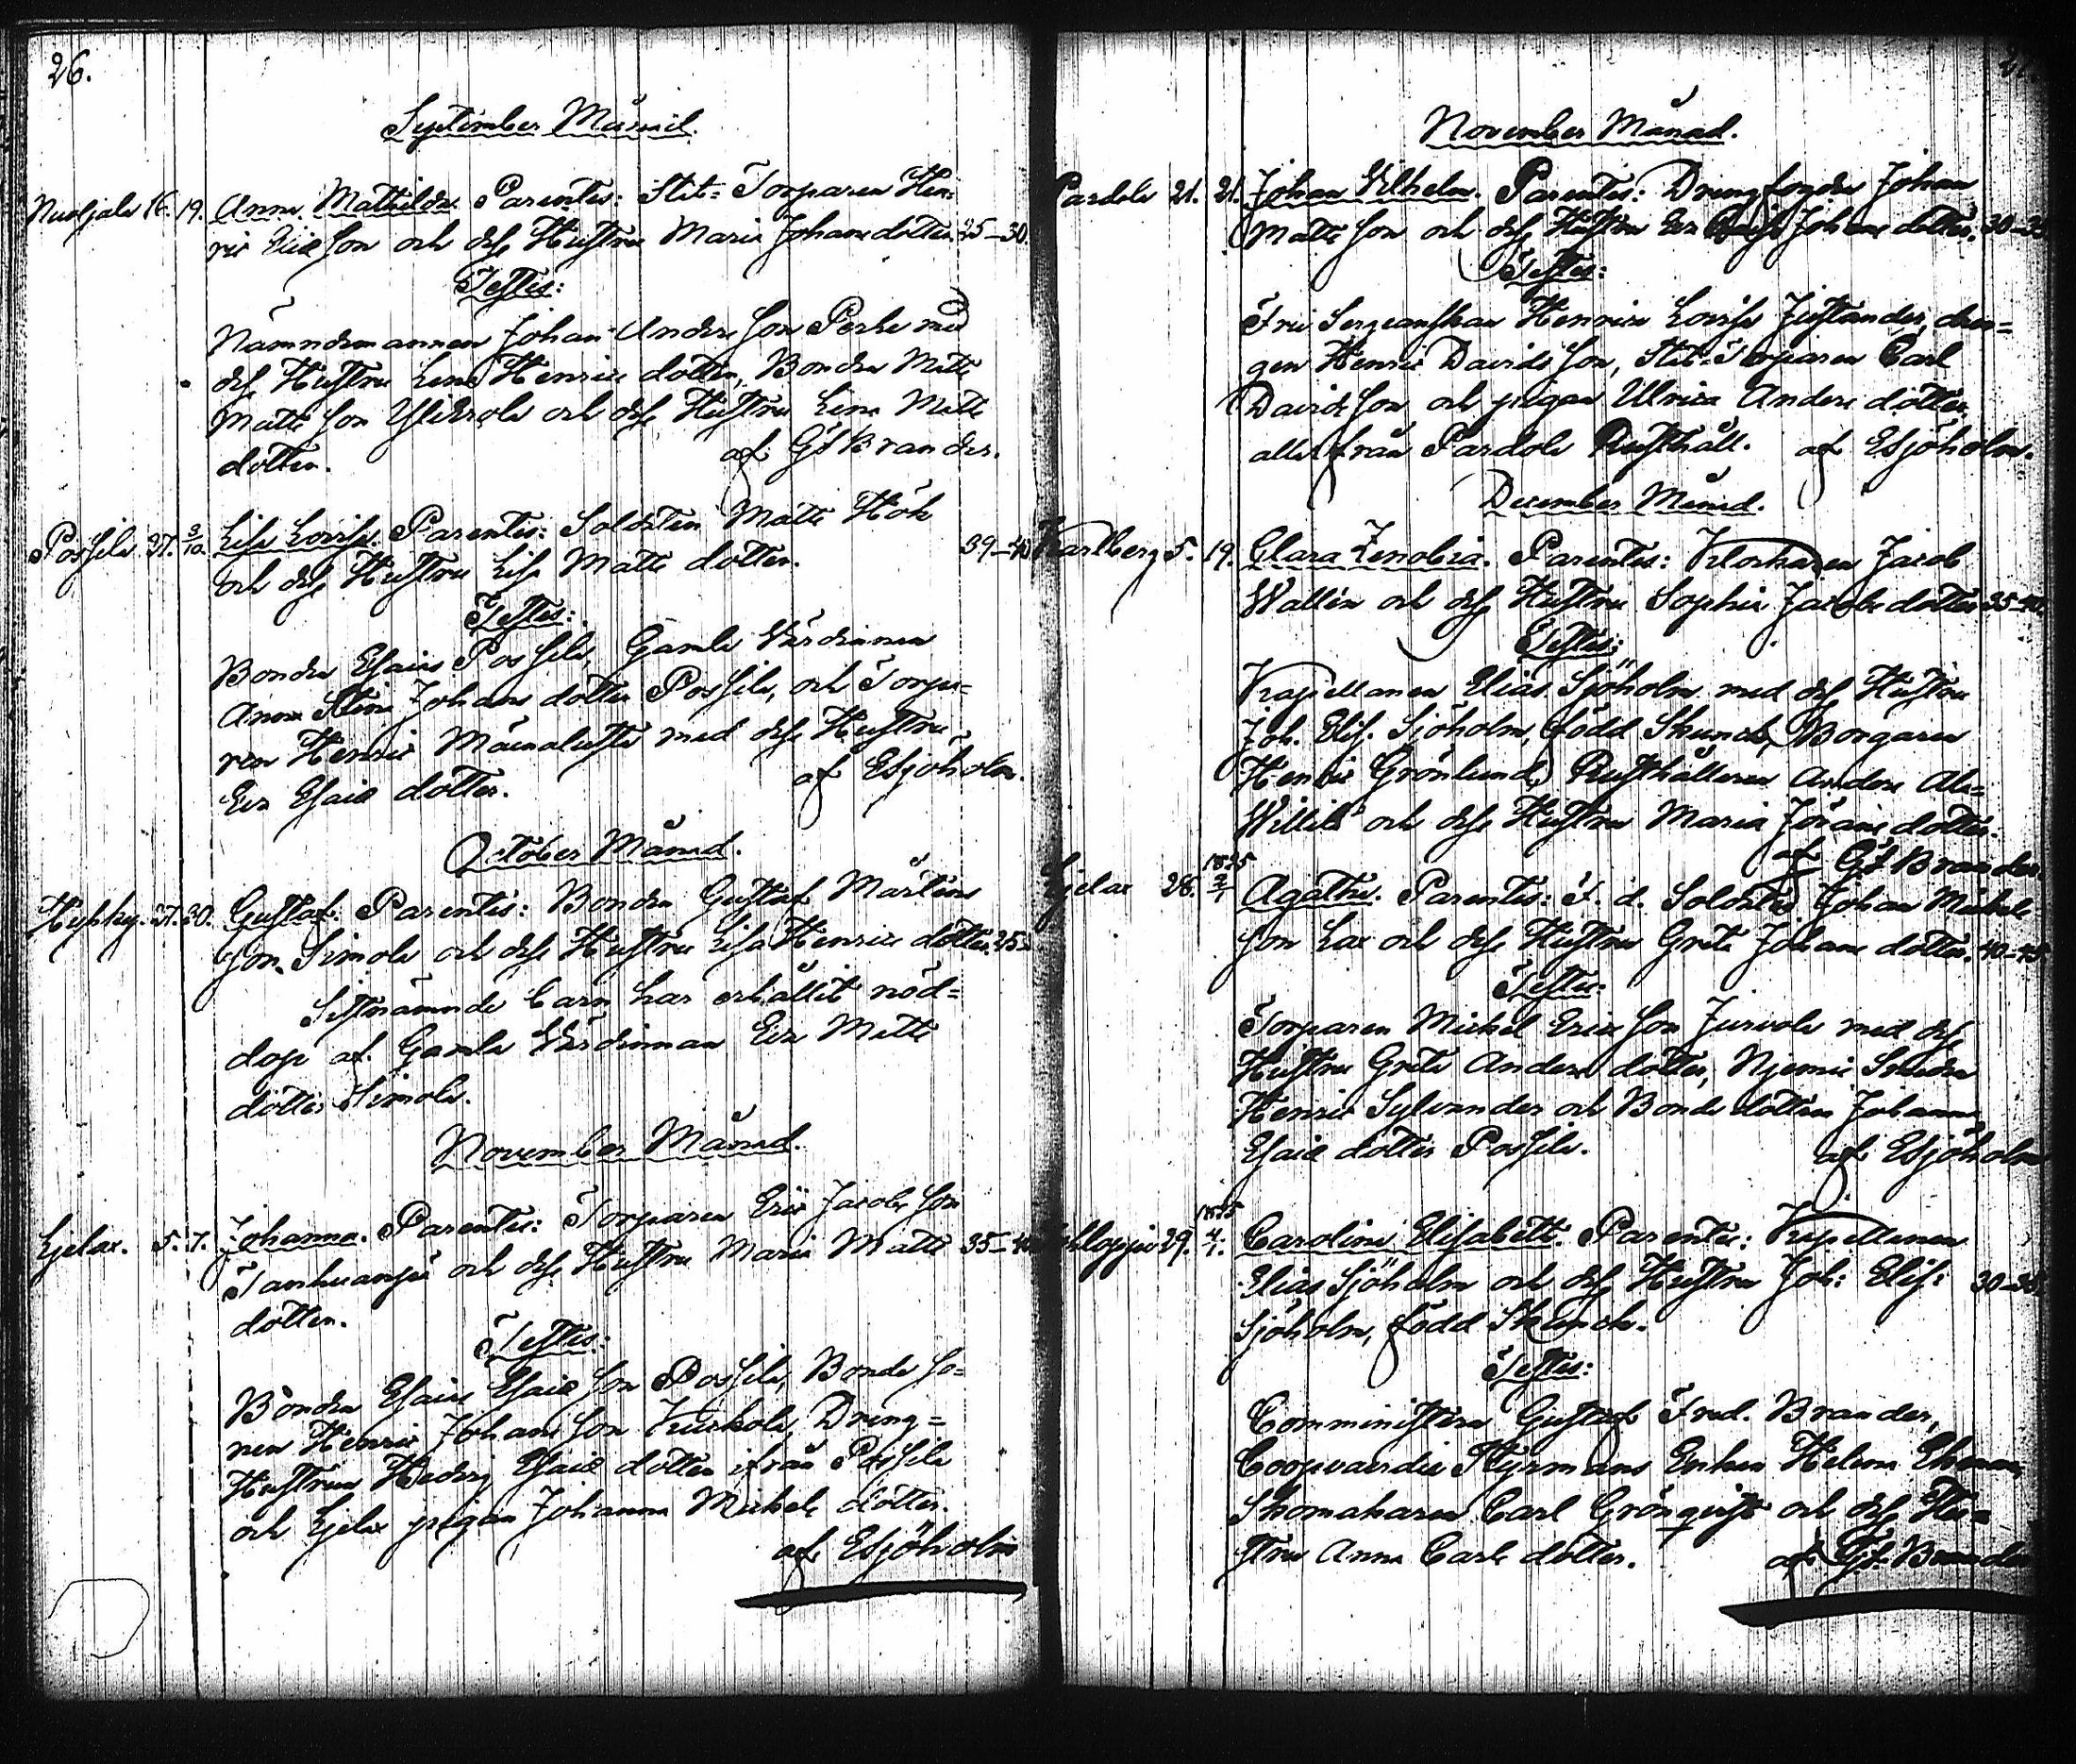 26.
September Månad.
16. 19. Anna Mathilda. Parentes: Stat-Torparen Hen-
ric Ericsson och dess Hustru Maria Johansdotter. 25-30.
Testes:
Nämndemannen Johan Andersson med
dess Hustru Lena Henricsdotter, Bonden Matts
Mattsson och dess Hustru Lena Matts
dotter. af GfBrander.
Possila 27. 3/10. Lisa Lovisa. Parentes: Soldaten Matts Hök
och dess Hustru Lisa Mattsdotter. 39-40
Testes:
Bonden Esaias Possila, Gamla Värdinnan
Anna Stina Johansdotter Possila, och Torpa-
ren Henric med dess Hustru
Eva Esaiædotter. af ESjöholm.
October Månad.
27. 30. Gustaf. Parentes: Bonden Gustaf Mårtens
son Simola och dess Hustru Lisa Henricsdotter. 25-
Sistnämnde barn har erhållit nöd-
dop af Gamla Värdinnan Eva Matts
dotter Simola.
November Månad.
Gjelax. 5. 7. Johanna. Parentes: Torparen Eric Jacobsson
och dess Hustru Maria Matts 35-40
dotter.
Testes:
Bonden Esaias Esaiæson Possila, Bondeso-
nen Henric Johansson Dräng-
Hustrun Hedvig Esaiædotter ifrån Possila
och Gjelax pigan Johanna Mickelsdotter.
af ESjöholm
November Månad.
Pardola 21. 21. Johan Vilhelm. Parentes: Drengfogden Johan
Mattsson och dess Hustru Eva Johansdotter. 30-35
Testes:
Fru Sergeantskan Henrica Lovisa dren-
gen Henric Davidsson, Stat-Torparen Carl
Davidsson och pigan Ulrica Andersdotter,
alla från Pardola Rusthåll. af ESjöholm.
December Månad.
Karlberg 5. 19. Clara Zenobia. Parentes: Klockaren Jacob
Wallén och dess Hustru Sophia Jacobsdotter 35-40.
Testes:
Kapellanen Elias Sjöholm med dess Hustru
Joh. Elis. Sjöholm, född Skunck, Borgaren
Henric Grönlund, Rusthållaren Anders Ala-
Willilä och dess Hustru Maria Göransdotter.
af Gf Brander.
Gjelax 28. 1835 2/1 Agatha. Parentes: F. d. Soldaten Johan Mickels
son Lax och dess Hustru Greta Johansdotter. 40-45
Testes:
Torparen Mickel Ericsson Jurvola med dess
Hustru Greta Andersdotter, Smeden
Henric Sylvander och Bondedottern Johanna
Esaiædotter Possila. af ESjöholm
29. 1835 4/1. Carolina Elisabeth. Parentes: Kapellanen
Elias Sjöholm och dess Hustru Joh: Elis: 30-35
Sjöholm, född Skunck.
Testes:
Comministern Gustaf Fred. Brander,
Coopvaerdie Styrmans Enkan Helena Ekman
Skomakaren Carl Grönqvist och dess Hu-
stru Anna Carlsdotter. af Gf Brander